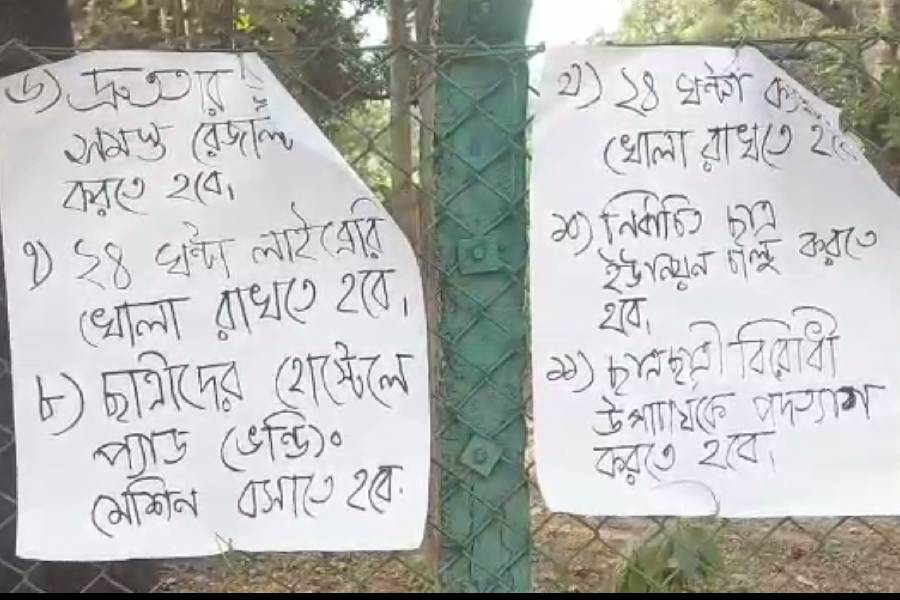 ৬) দ্রুততার
সমস্ত রেজাল্ট
করতে হবে।
৭) ২৪ ঘন্টা লাইব্রেরি
খোলা রাখতে হবে।
৮) ছাত্রীদের হোস্টেলে
প্যাড ভেন্ডিং
মেশিন বসাতে হবে.
৯) ২৪ ঘন্টা
খোলা রাখতে হবে
১০) নির্বাচিত ছাত্র
ইউনিয়ন চালু করতে
হবে।
১১) ছাত্রছাত্রী বিরোধী
উপাচার্যকে পদত্যাগ
করতে হবে।